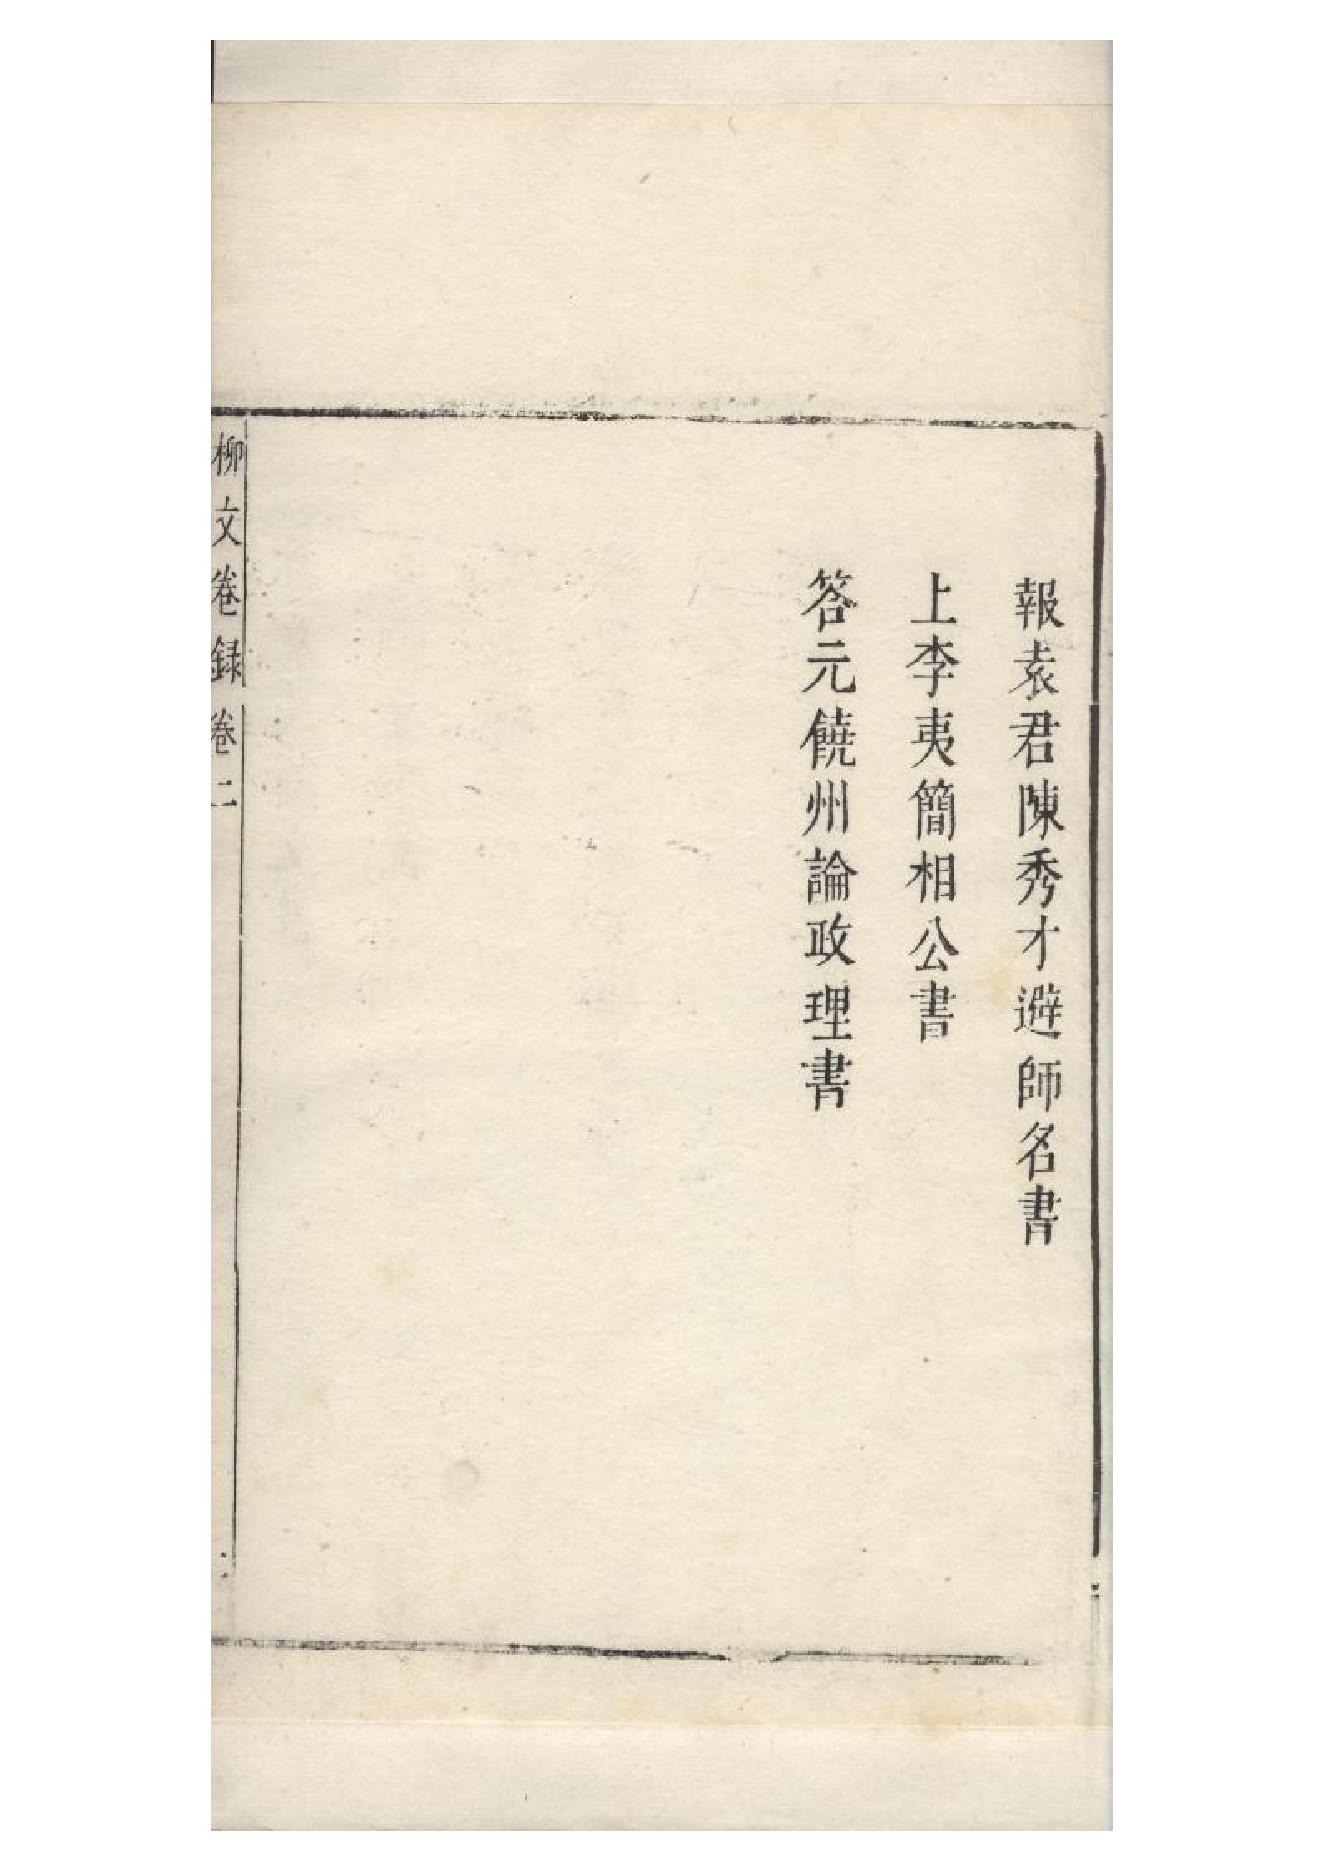 報袁君陳秀才避師名書
上李夷簡相公書
答元饒州論政理書
柳文卷録 卷二